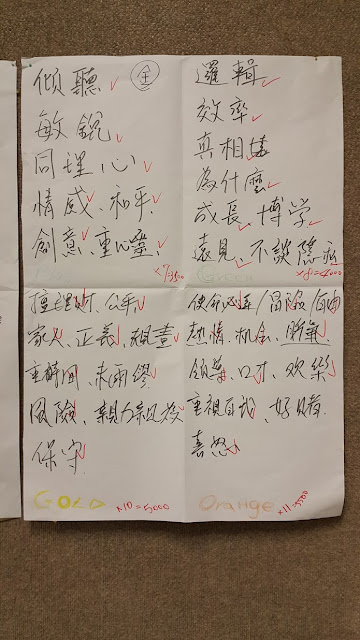 傾聽 金
敏銳
同理心
情感、和平、
創意、重心靈、
x7=3500
邏輯
效率
真相
為什麼
成長、博学
遠見、不談隱私
Green x8=4000
擅理財、公平
家人、正義、規畫
重時間、未雨綢
風險、親力親為
保守
GOLD x10=5000
使命必達/冒險/自由
熱情、机会、
領導、口才、欢樂
重視自我、好賭
喜怒
Orange x11=5500